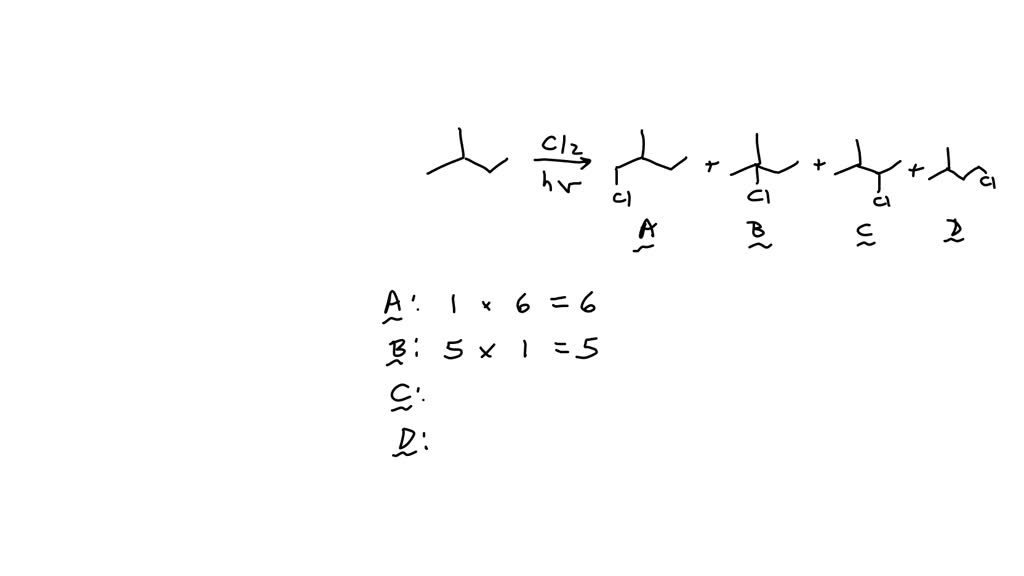 Cl2
hν
Cl
+
Cl
+
Cl
+
Cl
A B C D
A: 1 × 6 = 6
B: 5 × 1 = 5
C:
D: